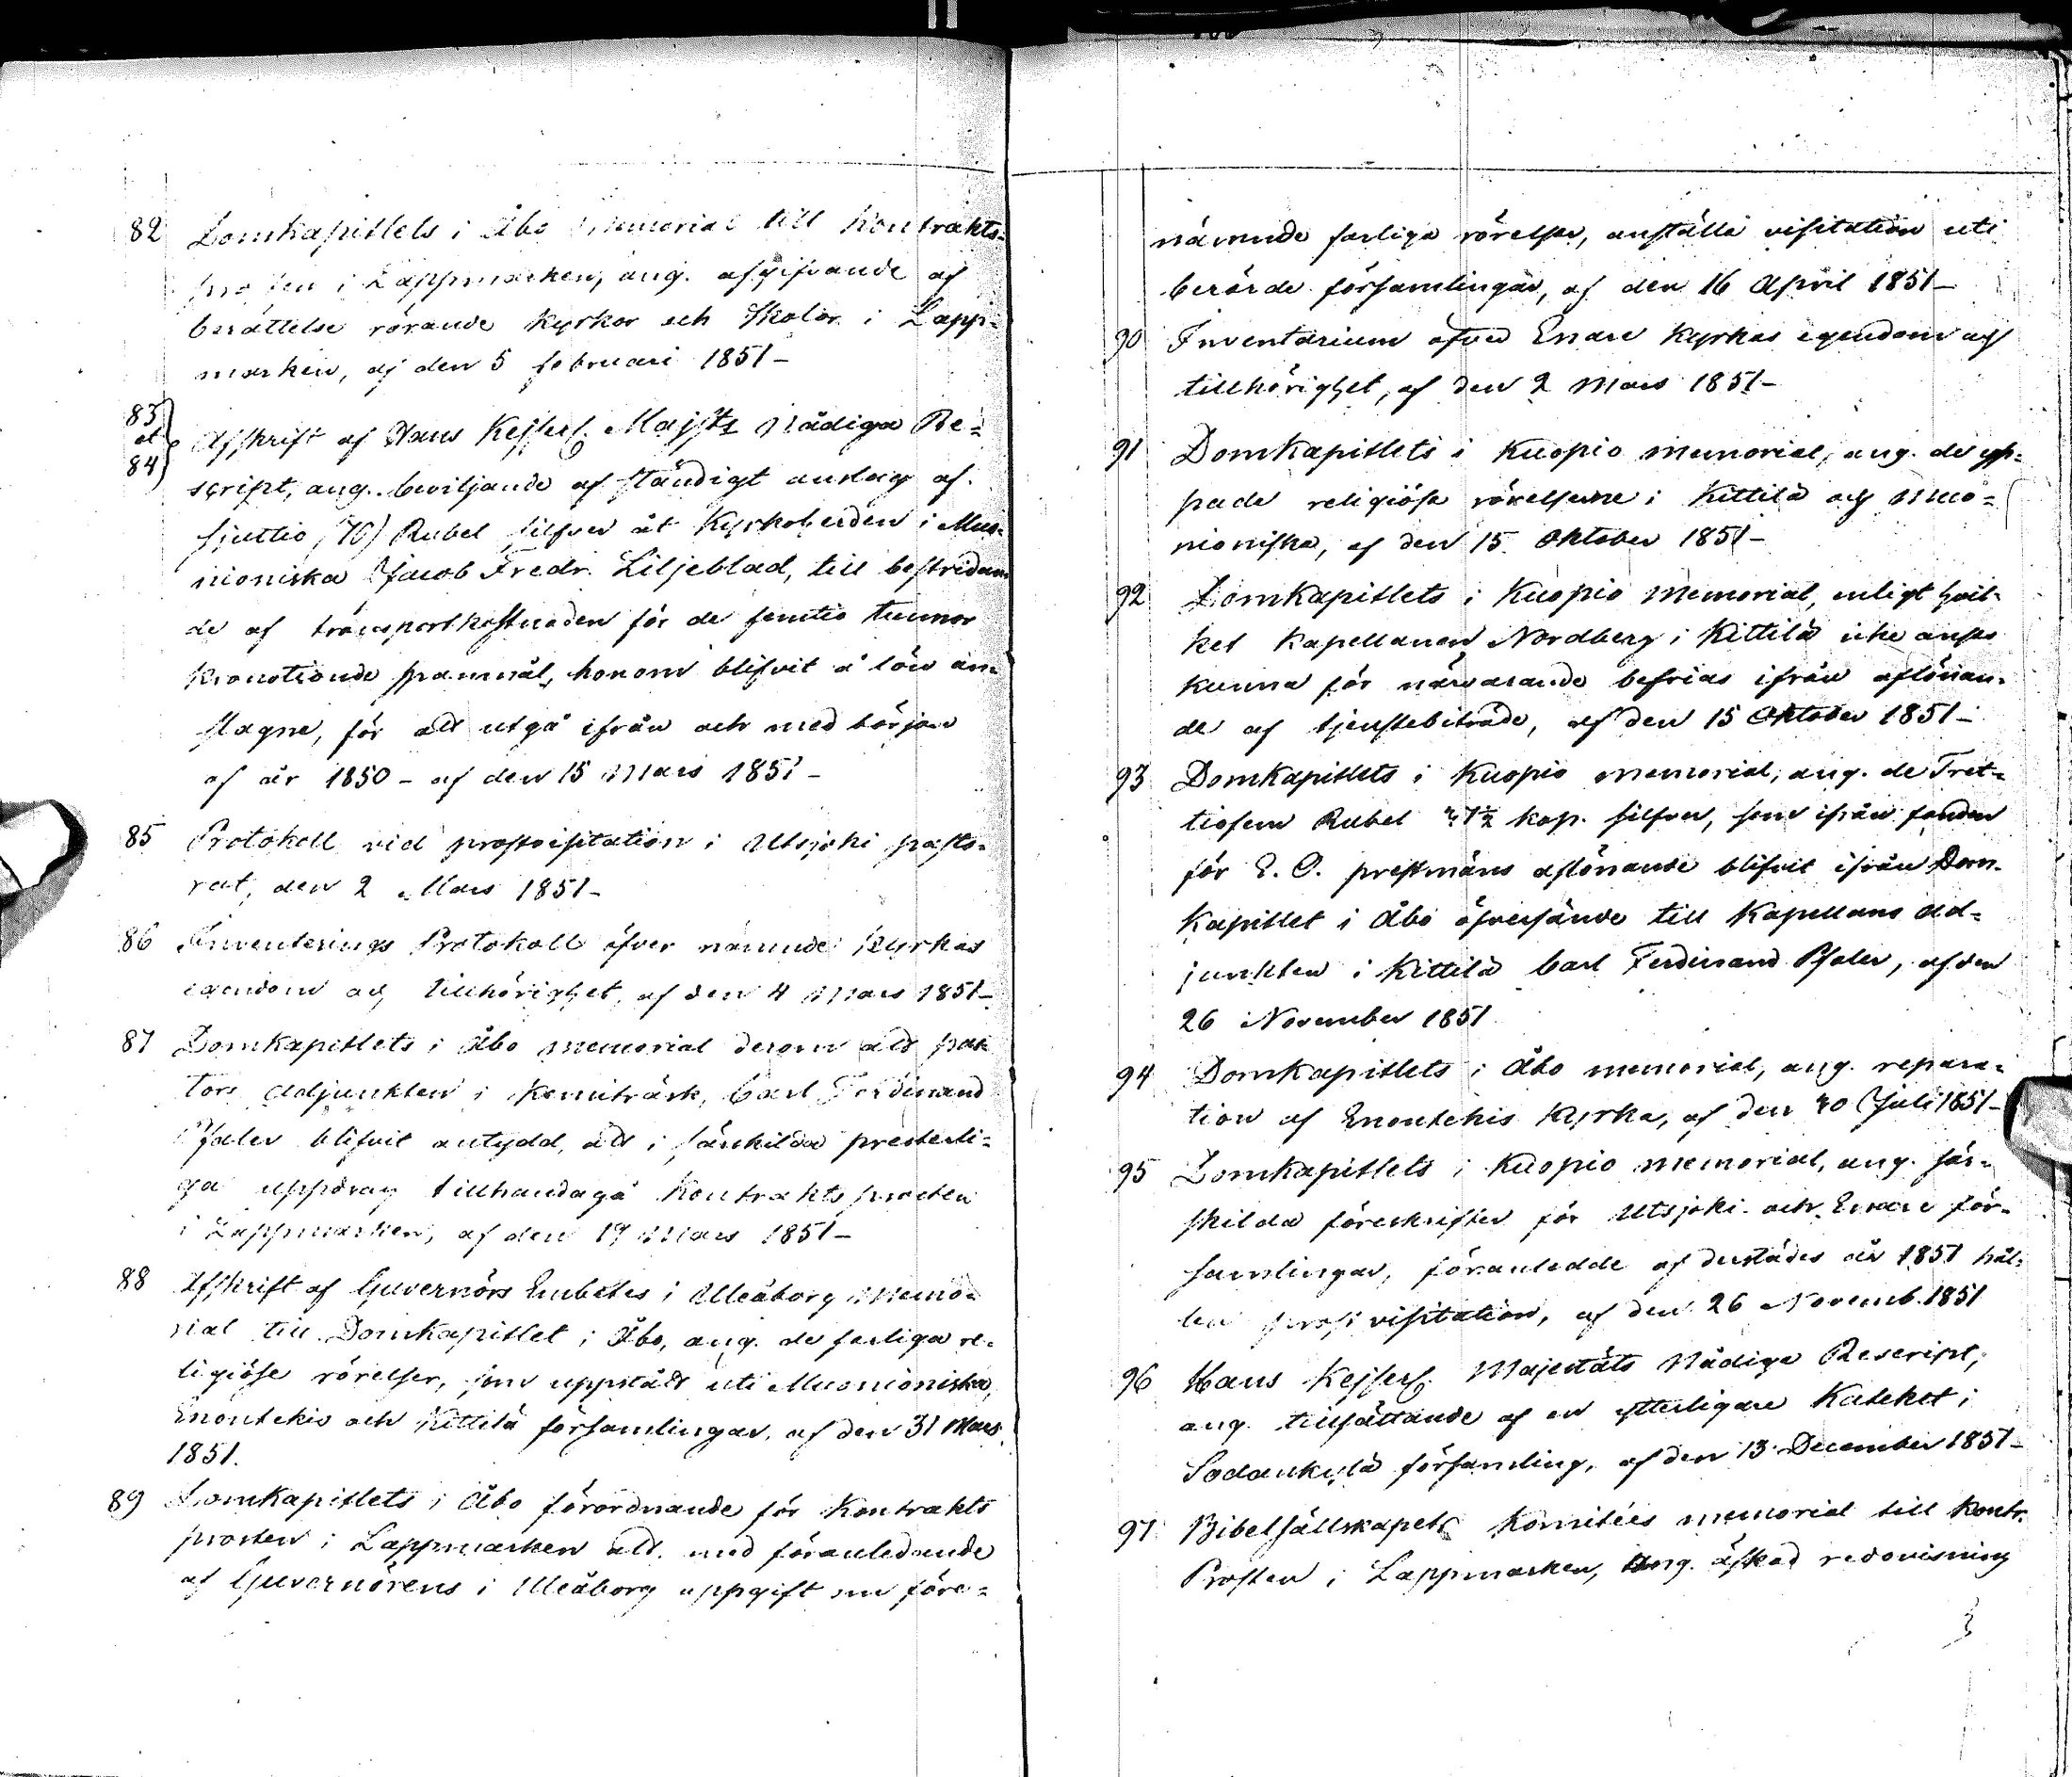 82 Domkapitlets i Åbo Memorial till Kontrakts-
prosten i Lappmarken, ang. afgifvande af
berättelse rörande kyrkor och Skolor i Lapp-
marken, af den 5 februari 1851 –
83 et 84 Afskrift af Hans Kejserl. Maj:sts Nådiga Re-
script, ang. beviljande af ständigt anslag af
sjuttio (70) Rubel silfver åt Kyrkoherden i Muo-
nioniska Jacob Fredr. Liljeblad, till bestridan-
de af transportkostnaden för de femtio tunnor
kronotionde spannmål, honom blifvit å lön an-
slagne, för att utgå ifrån och med början
af år 1850 – af den 15 Mars 1851 –
85 Protokoll vid prostvisitation i Utsjoki pasto-
rat, den 2 Mars 1851 –
86 Inventerings Protokoll öfver nämnde kyrkas
egendom och tillhörighet, af den 4 Mars 1851 –
87 Domkapitlets i Åbo memorial derom att pas-
tors adjunkten i Kemiträsk, Carl Ferdinand
Pfaler blifvit antydd, att i särskilda presterli-
ga uppdrag tillhandagå Kontrakts prosten
i Lappmarken, af den 19 Mars 1851 –
88 Afskrift af Guvernörs Embetes i Uleåborg Memo-
rial till Domkapitlet i Åbo, ang. de farliga re-
ligiöse rörelser, som uppstått uti Muonioniska,
Enontekis och Kittilä församlingar, af den 31 Mars
1851.
89 Domkapitlets i Åbo förordnande för Kontrakts
prosten i Lappmarken att, med föranledande
af Guvernörens i Uleåborg uppgift om före-
nämnde farliga rörelser, anställa visitation uti
berörde församlingar, af den 16 April 1851 –
90 Inventarium öfver Enare Kyrkas egendom och
tillhörighet, af den 2 Mars 1851 –
91 Domkapitlets i Kuopio memorial, ang. de yp-
pade religiösa rörelserne i Kittilä och Muo-
nioniska, af den 15 Oktober 1851 –
92 Domkapitlets i Kuopio Memorial, enligt hvil-
ket Kapellanen Nordberg i Kittilä icke anses
kunna för närvarande befrias ifrån aflönan-
de af tjenstebiträde, af den 15 Oktober 1851 –
93 Domkapitlets i Kuopio memorial, ang. de Tret-
tiofem Rubel 71½ kop. silfver, som ifrån fonden
för E. O. prestmäns aflönande blifvit ifrån Dom-
kapitlet i Åbo öfversände till Kapellans Ad-
junkten i Kittilä Carl Ferdinand Pfaler, af den
26 November 1851
94 Domkapitlets i Åbo memorial, ang. repara-
tion af Enontekis Kyrka, af den 30 Juli 1851 –
95 Domkapitlets i Kuopio memorial, ang. sär-
skilda föreskrifter för Utsjoki och Enare för-
samlingar, föranledde af derstädes år 1851 håll-
en prost visitation, af den 26 Novemb. 1851
96 Hans Kejserl. Majestäts Nådiga Rescript,
ang. tillsättande af en ytterligare Kateket i
Sodankylä församling, af den 13 December 1851 –
97 Bibelsällskapets Komitées memorial till Kontr.
Prosten i Lappmarken, ang. äskad redovisning